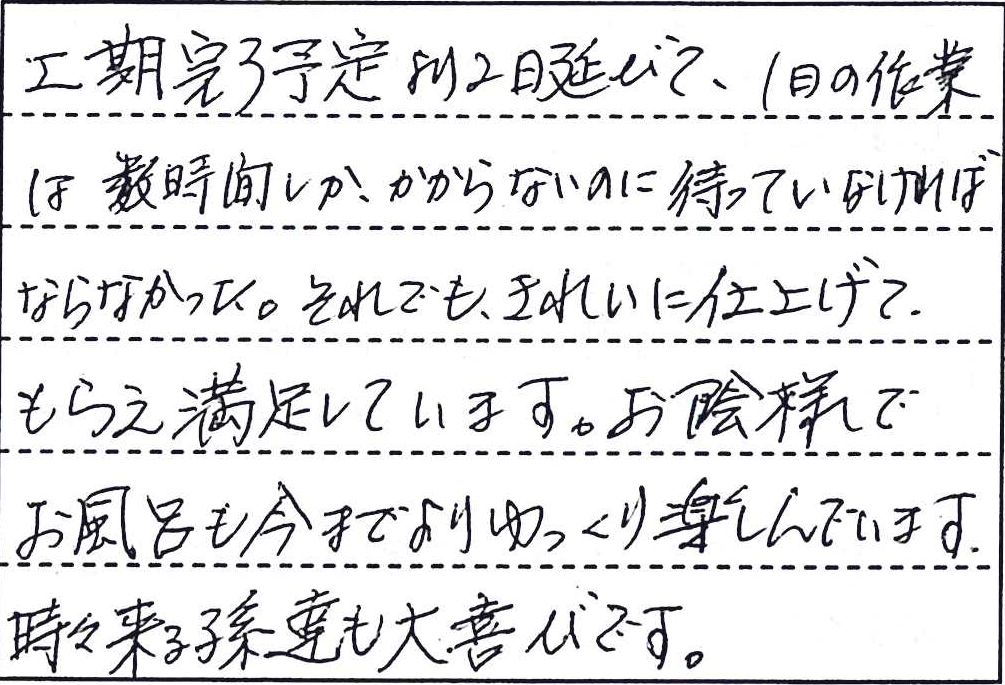 工期完了予定より2日延びて、1日の作業
は数時間しか、かからないのに待っていなければ
ならなかった。それでも、きれいに仕上げて
もらえ満足しています。お陰様で
お風呂も今までよりゆっくり楽しんでいます。
時々来る孫達も大喜びです。